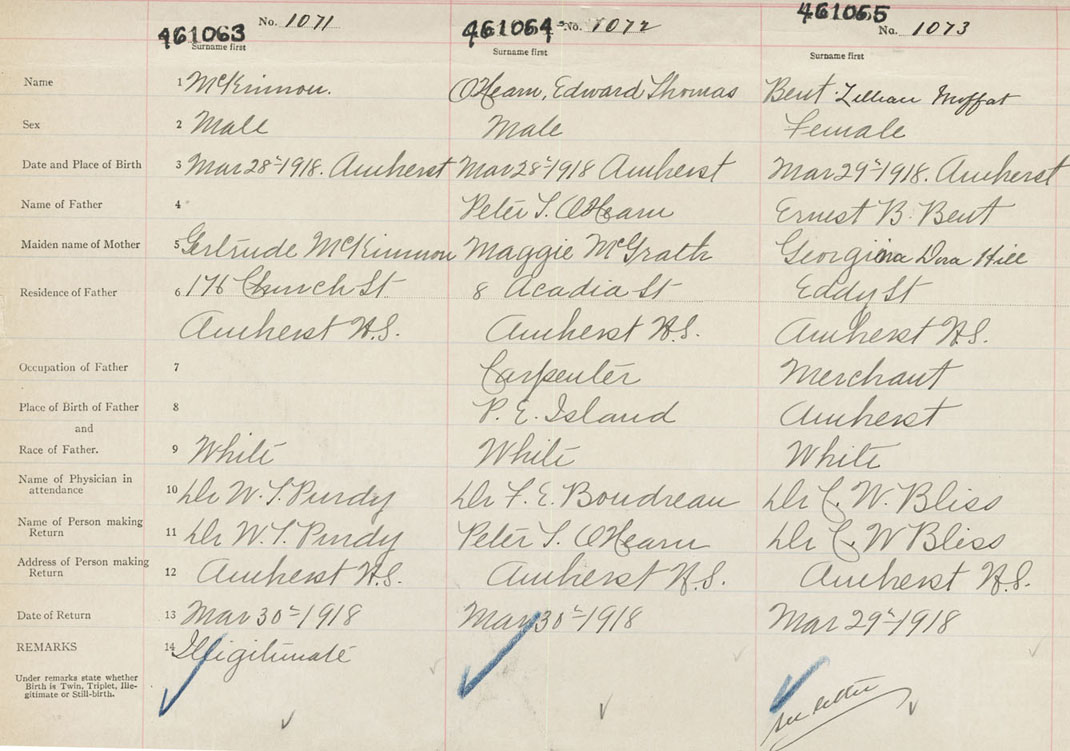 461063 No. 1071 461064 No. 1072 461065 No. 1073
Surname first Surname first Surname first
Name 1 McKinnon. O'Hearn, Edward Thomas Bent Lillian Moffat
Sex 2 Male Male Female
Date and Place of Birth 3 Mar 28-1918. Amherst Mar 28-1918 Amherst Mar 29-1918. Amherst
Name of Father 4 Peter S. O'Hearn Ernest B. Bent
Maiden name of Mother 5 Gertrude McKinnon Maggie McGrath Georgina Dora Hill
Residence of Father 6 176 Church St 8 Acadia St Eddy St
Amherst N.S. Amherst N.S. Amherst N.S.
Occupation of Father 7 Carpenter Merchant
Place of Birth of Father 8 P. E. Island Amherst
and
Race of Father. 9 White White White
Name of Physician in
attendance 10 Dr W. T. Purdy Dr F. E. Boudreau Dr C. W. Bliss
Name of Person making
Return 11 Dr W. T. Purdy Peter S. O'Hearn Dr C. W Bliss
Address of Person making
Return 12 Amherst N.S. Amherst N.S. Amherst N.S.
Date of Return 13 Mar 30-1918 Mar 30-1918 Mar 29-1918
REMARKS 14 Illigitimate
Under remarks state whether
Birth is Twin, Triplet, Ille-
gitimate or Still-birth.
see letter